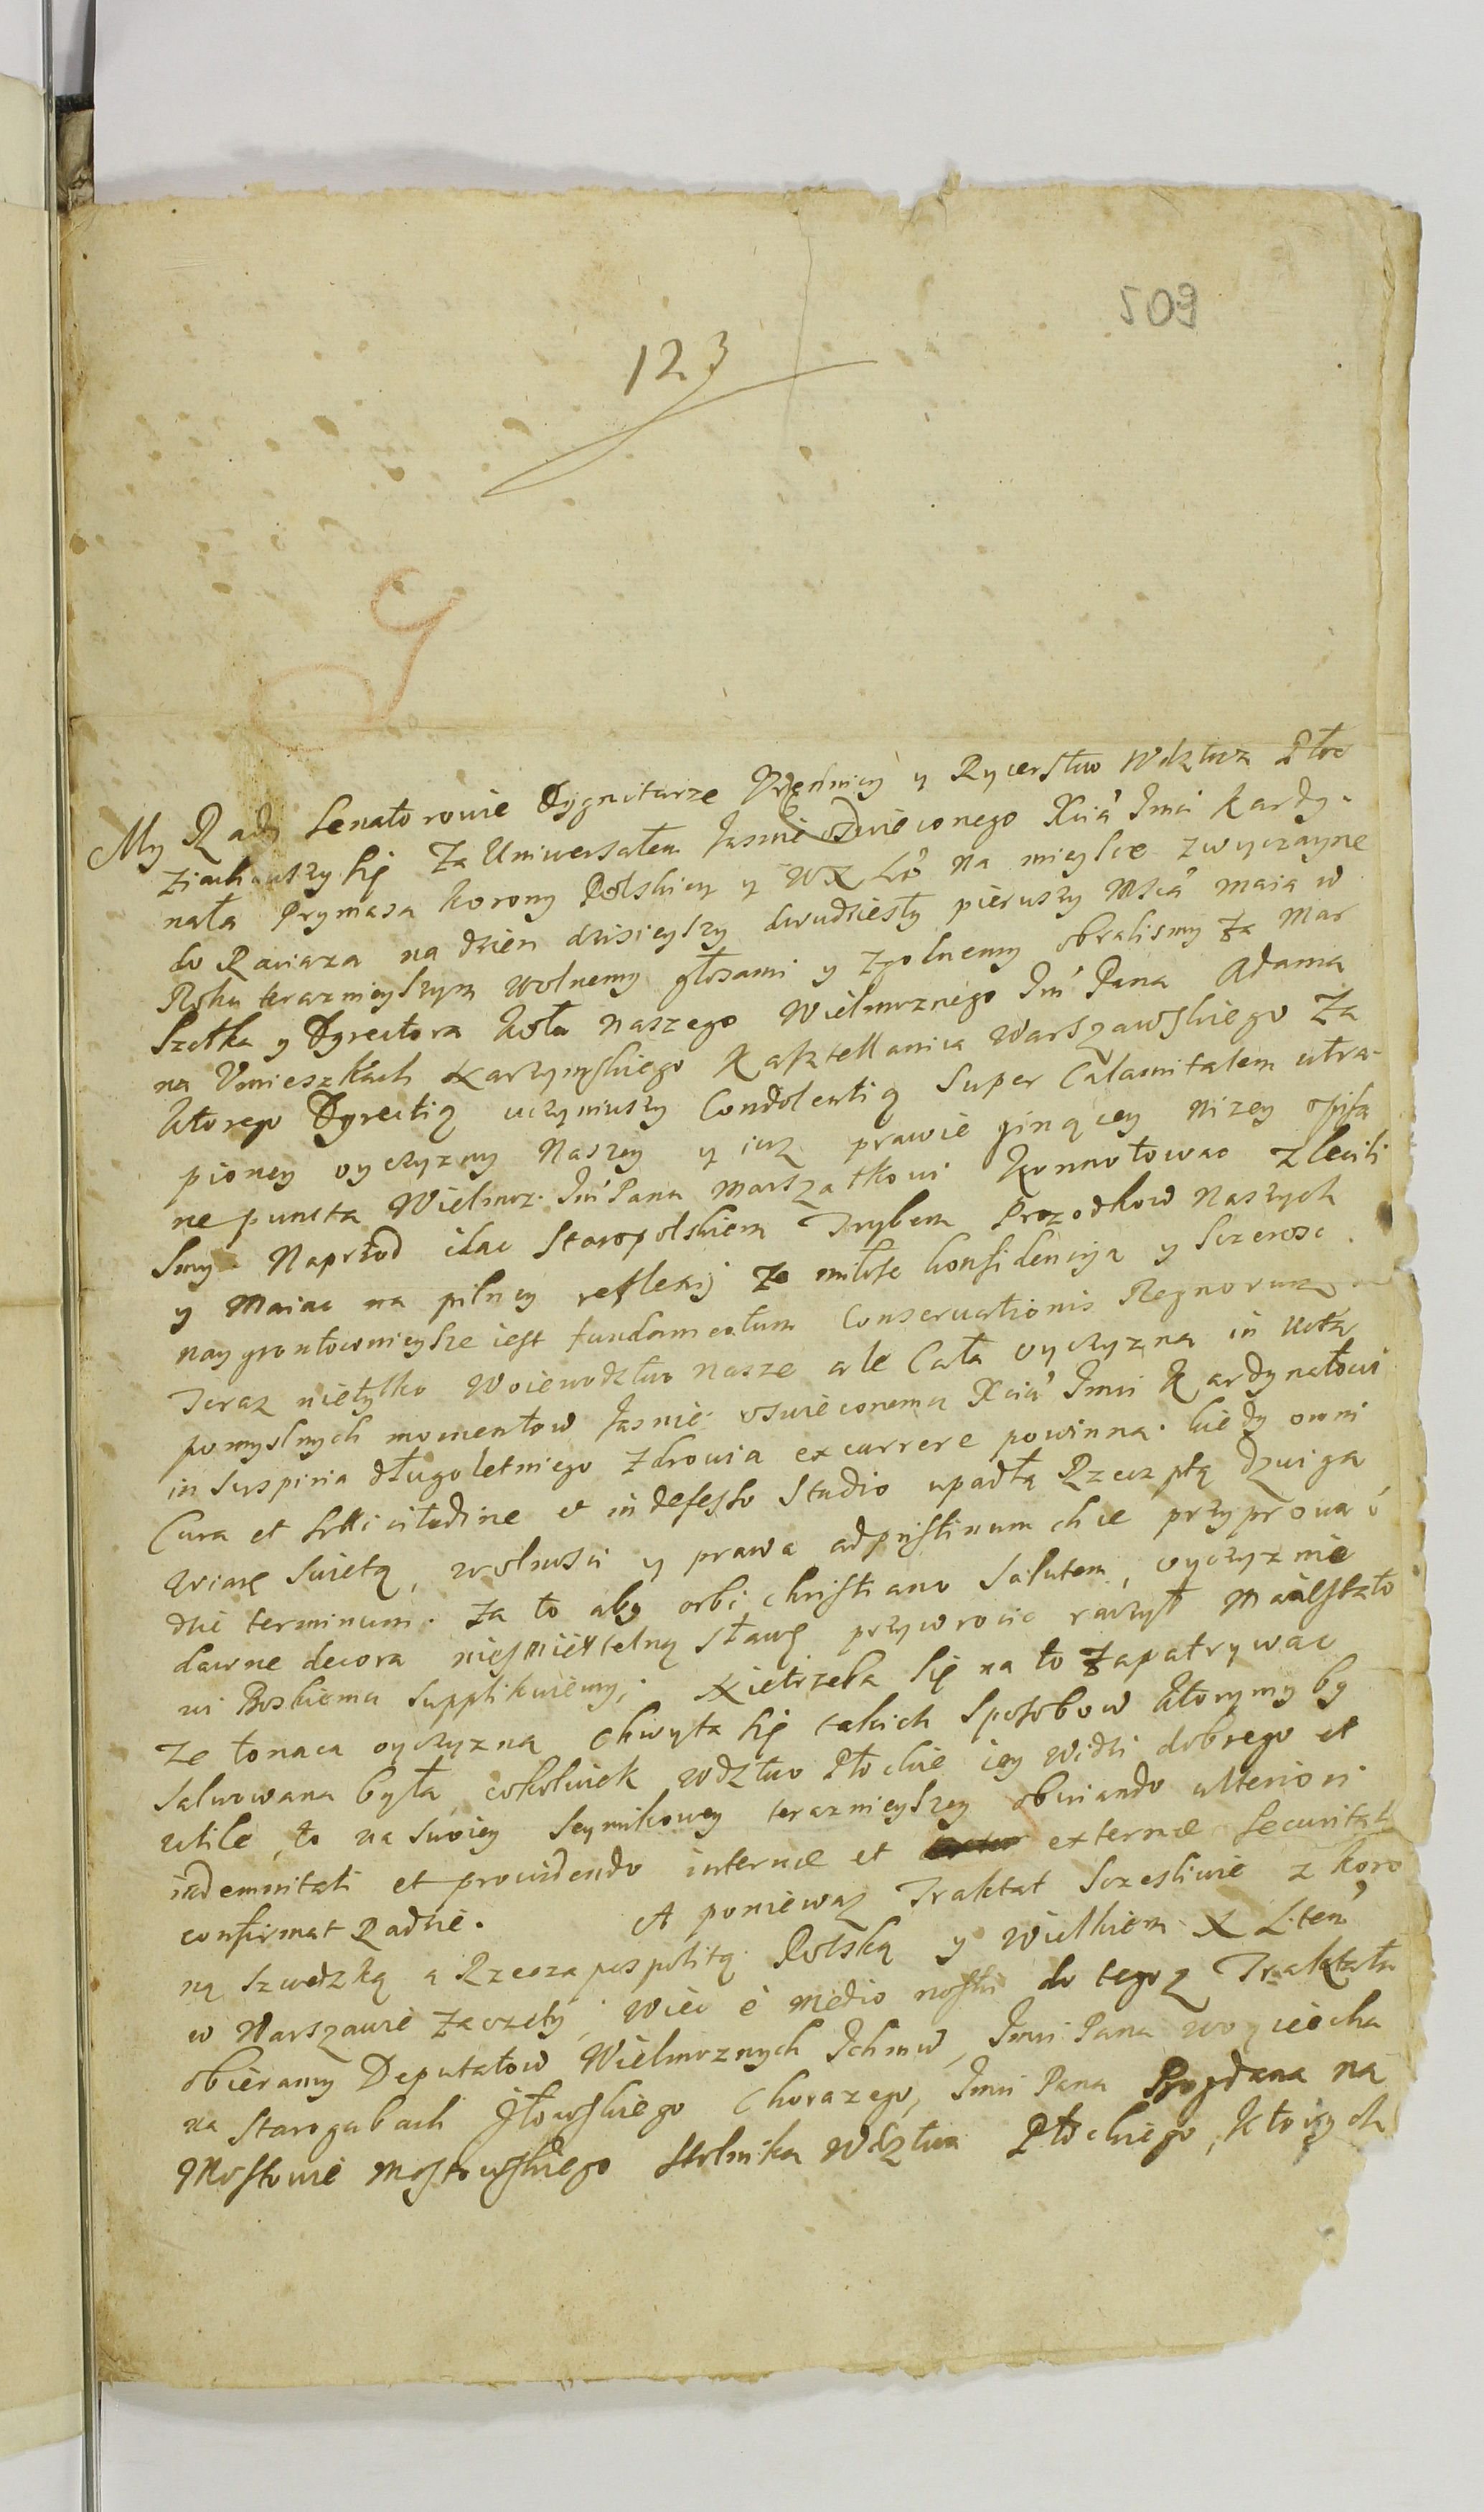 509
123
My Rady Senatorowie Dygnitarze Urzędnicy y Rycerstwo Wdztwa Płoc
Ziachawszy się Za Uniwersałem Jasnie oświeconego Xcia Jmci Kardy-
nała Prymasa Korony Polskiey y WXLo na mieysce zwyczayne
do Raciąża na dzien dzisieyszy dwudziesty pierwszy Msca maia w
Roku teraznieyszym wolnemy głosami y Zgolnemy obralismy za Mar
Szałka y Dyrectora koła naszego Wielmoznego Jm Pana Adama
na Umieszkach Karzynskiego Kasztellanica Warszawskiego Za
ktorego Dyrectią uczyniwszy Condolentią Super Calamitatem utra-
pioney oyczyzny Naszey y iuz prawie ginącey nizey opisa
ne puncta Wielmoz. Jm Panu Marszałkowi konnotowac zlecili
smy. Naprzod idąc Staropolskiem Trybem Przodkow Naszych
y Maiąc na pilney reflexij Ze miłosc konfidencyja y Sczerosc
naygrontownieysze iest fundamentum Conservationis Regnorum
Teraz nietylko Woiewodztwo Nasze ale Cała oyczyzna in vota
pomyslnych momentow Jasnie oswieconemu Xciu Jmci Kardynałowi
in suspiria długoletniego Zdrowia excurrere powinna. kiedy omni
Cura et Sollicitudine et indefesso Studio upadłą Rzeczptą dzwiga
Wiarę Swiętą, wolnosci y prawa ad pristinum chce przyprowa
dzic terminum. Za to aby orbi Christiano Salutem, oyczyznie
dawne decora niesmiertelną sławę przywrocic raczył Maiestato
wi Boskiemu Supplikuiemy, Nietrzeba się na to Zapatrywac
Ze tonąca oyczyzna Chwyta się takich Sposobow ktorymy by
Salwowana była, cokolwiek wdztwo Płockie iey widzi dobrego et
utile, to na swoiey Seymikowey teraznieyszey obviando ulteriori
indemnitati et providendo internæ et externæ Securitati
confirmat Radzie. A poniewaz Traktat Szczesliwie z koro
ną Szwedzką a Rzecząpospolitą Polską y Wielkiem X Liten
w Warszawie Zaczęty, Wiec è medio nostri do tegoz Traktatu
obieramy Deputatow Wielmoznych Ichmw, Jmci Pana Woyciecha
na Starogubach Jłowskiego Chorązego, Jmci Pana Bogdana na
Mostowie Mostowskiego Stolnika Wdztwa Płockiego, ktorych